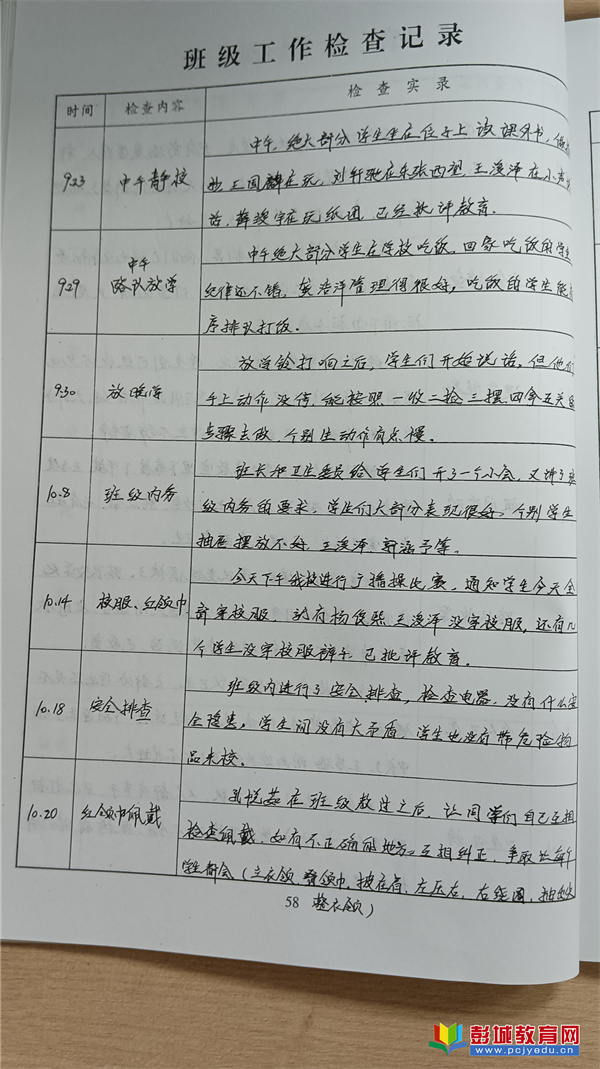 班级工作检查记录
时间 检查内容 检查实录
9.23 中午静校
中午，绝大部分学生坐在位子上读课外书，
王国麟在玩，刘轩驰在东张西望，王浚泽在小声
话，薛骏宇在玩纸团，已经批评教育。
9.29 中午路队放学
中午绝大部分学生在学校吃饭，回家吃饭的学生
纪律还不错，浩洋管理得很好，吃饭的学生能
序排队打饭。
9.30 放晚学
放学铃打响之后，学生们开始说话，但他们
手上动作没停，能按照一收二捡三摆四拿五关
步骤去做，个别生动作有点慢。
10.8 班级内务
班长和卫生委员给学生们开了一个小会，又讲了班
级内务的要求，学生们大部分表现很好，个别学生
抽屉摆放不好，王浚泽、郭涵予等。
10.14 校服、红领巾
今天下午我校进行广播操比赛，通知学生今天全
部穿校服，就有杨俊熙、王浚泽没穿校服，还有几
个学生没穿校服裤子，已批评教育。
10.18 安全排查
班级内进行了安全排查，检查电器，没有什么安
全隐患，学生间没有大矛盾，学生也没有带危险物
品来校。
10.20 红领巾佩戴
孔悦茹在班级教过之后，让同学们自己互相
检查佩戴，如有不正确的地方互相纠正，争取让每个
学生都会（立衣领，叠领巾，披在肩，左压右，右绕圈，抽出尖
整衣领）
58
彭城教育网
www.pcjyedu.cn